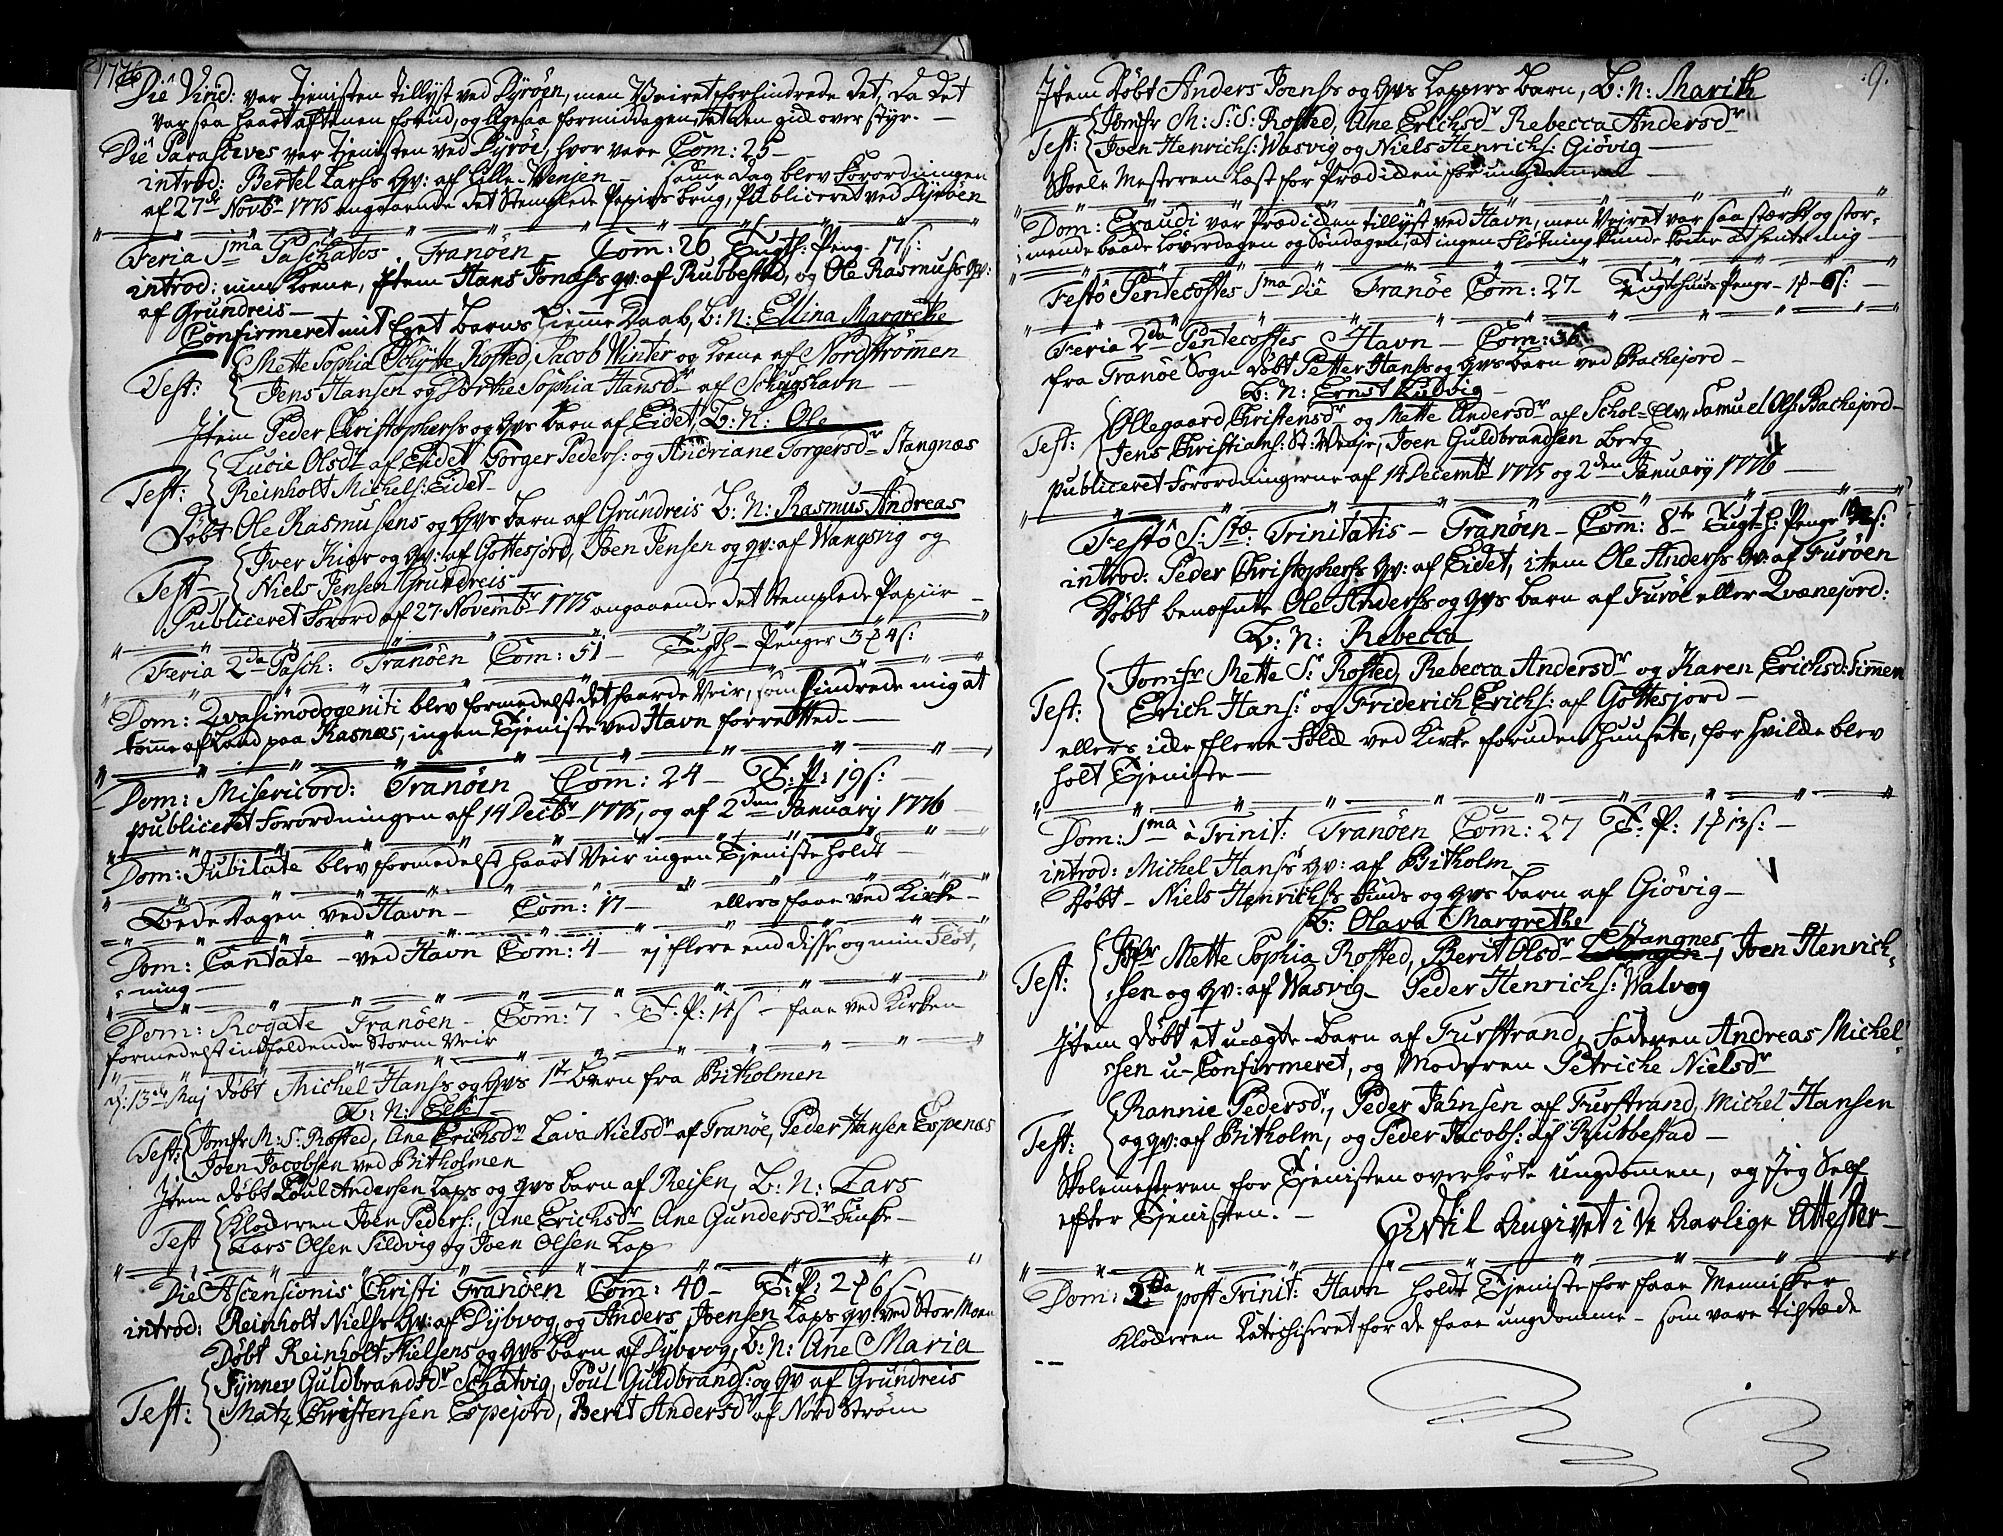 1776
Diê Virid: var Tjenisten tillyst ved Dyröen, men Veiret forhindrede det, da det
var saa haart aftenen forud, og ligesaa formiddagen, at den gik over styr. —
Diê Parasceves var Tjenisten ved Dyröe, hvor vare Com: 25 —
introd: Bertel Larss qv: af Lille-Wenjen — samme dag blev Forordningen
af 27de Novbr 1775 angaaende det Stemplede Papiirs brug, Publiceret ved Dyröen
Feria 1ma Paschatos. Tranöen — Com: 26 Tugth: Peng. 17 s:
introd: min Kone, Item Hans Jonass qv: af Rubbestad, og Ole Rasmuss qv:
af Grundreis —
Confirmeret mit Eget barns Hiemme Daab, b: n: Ellina Margrethe
Mette Sophia Schytte Rosted, Jacob Winter og Kone af Nordströmmen
Test: Jens Hansen og Dorthe Sophia Hansdr af Schrogshavn —
Item Peder Christopherss og qvs barn af Eidet, b: n: Ole
Lucie Olsdr af Eidet Torger Peders: og Andriane Torgersdr Stangnæs
Test: Reinholt Michels: Eidet —
Döbt Ole Rasmusens og qvs barn af Grundreis b: n: Rasmus Andreas
Iver Kiær og qv: af Gottesjord, Joen Jensen og qv: af Wangsvig og
Test — Niels Jensen Grundreis —
Publiceret Forord af 27 Novembr 1775 angaaende det Stemplede Papiir —
Feria 2da Pasch: Tranöen Com: 51 — Tugth — Penger 3 4 s:
Dom: Qvasimodogeniti blev formedelst det haarde Veir, som hindrede mig at
komme af Land paa Kasnæs, ingen Tjeniste ved Havn forrettet. —
Dom: Misericord: Tranöen Com: 24 — T: P: 19 s: —
publiceret Forordningen af 14 Decbr 1775, og af 2den January 1776
Dom: Jubilate blev formedelst haart Veir ingen Tjeniste holdt —
Bededagen ved Havn — Com: 17 — ellers faae ved Kirke —
Dom: Cantate — ved Havn Com: 4 — ej flere end disse og min Flöt,
ning —
Dom: Rogate Tranöen — Com: 7 — T: P: 14 s — faae ved Kirken
formedelst indholdende Storm Veir
d: 13de Maj döbt Michel Hanss og qvs 1te barn fra Bitholmen
b: n: Else
Test: Jomfr M: S: Rosted, Ane Erichsdr Lava Nielsdr af Tranöe, Peder Hansen Espenæs
Joen Jacobsen ved Bitholmen
Item döbt Poul Andersen Laps og qvs barn af Reisen, b: n: Lars
Klokkeren Joen Peders:, Ane Erichsdr Ane Gundersdr
Test Lars Olsen Sildvig og Joen Olsen Lap
Die Ascensionis Christi Tranöen Com: 40 — T: P: 2 6 s
introd: Reinholt Nielss qv: af Dybvog, og Anders Joensen Laps qv: ved StorMoen
Döbt Reinholt Nielsens og qvs barn af Dybvog, b: n: Ane Maria
Synnev Guldbrandsdr Schatvig, Poul Guldbrands: og qv af Grundreis
Test: Matz Christensen Espejord, Berit Andersdr af Nordström
9.
Item Döbt Anders Joenss og qvs Lappers barn, b: n: Marith
Jomfr M: S: S: Rosted, Ane Erichsdr Rebecca Andersdr
Test: Joen Henrichs: Wasvig og Niels Henrichs: Giövig —
Skole Mesteren læst for Prædiken for ungdommen —
Dom: Exaudi var Prædiken tillyst ved Havn, men Vejret var saa stærkt og stor-
mende baade Löverdagen og Söndagen, at ingen Flötning kunde komme at hente mig —
Festô Pentecostes 1ma Diê Tranöe Com: 27 — Tugthuus Penge — 1 6 s: —
Feria 2da Pentecostes Havn — Com: 36
fra Tranöe Sogn döbt Petter Hanss og qvs barn ved Bachejord —
b: n: Ernst Ludvig —
Ollegaard Christensdr og Mette Andersdr af Schol-Elv Samuel Ols: Bachejord —
Test: Jens Christians: St: Wenje, Joen Guldbrandsen Berg
publiceret Forordningerne af 14 Decembr 1775 og 2den January 1776 —
Festô S: Stæ: Trinitatis — Tranöen — Com: 8te Tugt-h: Penge s:
introd: Peder Christopherss qv: af Eidet, item Ole Anderss qv: af Furöen
Döbt benæfnte Ole Anderss og qvs barn af Furöe eller Qvænejord:
b: n: Rebecca
Jomfr Mette S: Rosted, Rebecca Andersdr og Karen Erichsd:
Test: Erich Hans: og Friderich Erichs: af Gottesjord —
ellers ikke flere Folk ved Kirke foruden huusets, for hvilke blev
holt Tjeniste —
Dom: 1ma à Trinit: Tranöen Com: 27 T: P: 1 13 s: —
introd: Michel Hanss qv: af Bitholm —
Döbt — Niels Henrichss Finds og qvs barn af Giövig —
b: Olava Margrethe
Jfr Mette Sophia Rosted, Berit Olsdr Stangnes, Joen Henrich-
Test: sen og qv: af Wasvig — Peder Henrichs: Walvog
Item döbt et uægte barn af Furstrand, Faderen Andreas Michel-
sen u-Confirmeret, og Moderen Petriche Nielsdr
Rannie Pedersdr, Peder Jahnsen af Furstrand, Michel Hansen
Test: og qv: af Bitholm, og Peder Jacobs: af Rubbestad —
Skolemesteren for Tjenisten overhörte ungdommen, og jeg Self
efter Tjenisten. —
Hidtil Angivet i de Aarlige Attester —
Dom: 2da post Trinit: Havn holdt Tjeniste for faae Mennisker
Klokkeren Catechiseret for de faae ungdomme — som vare tilstæde